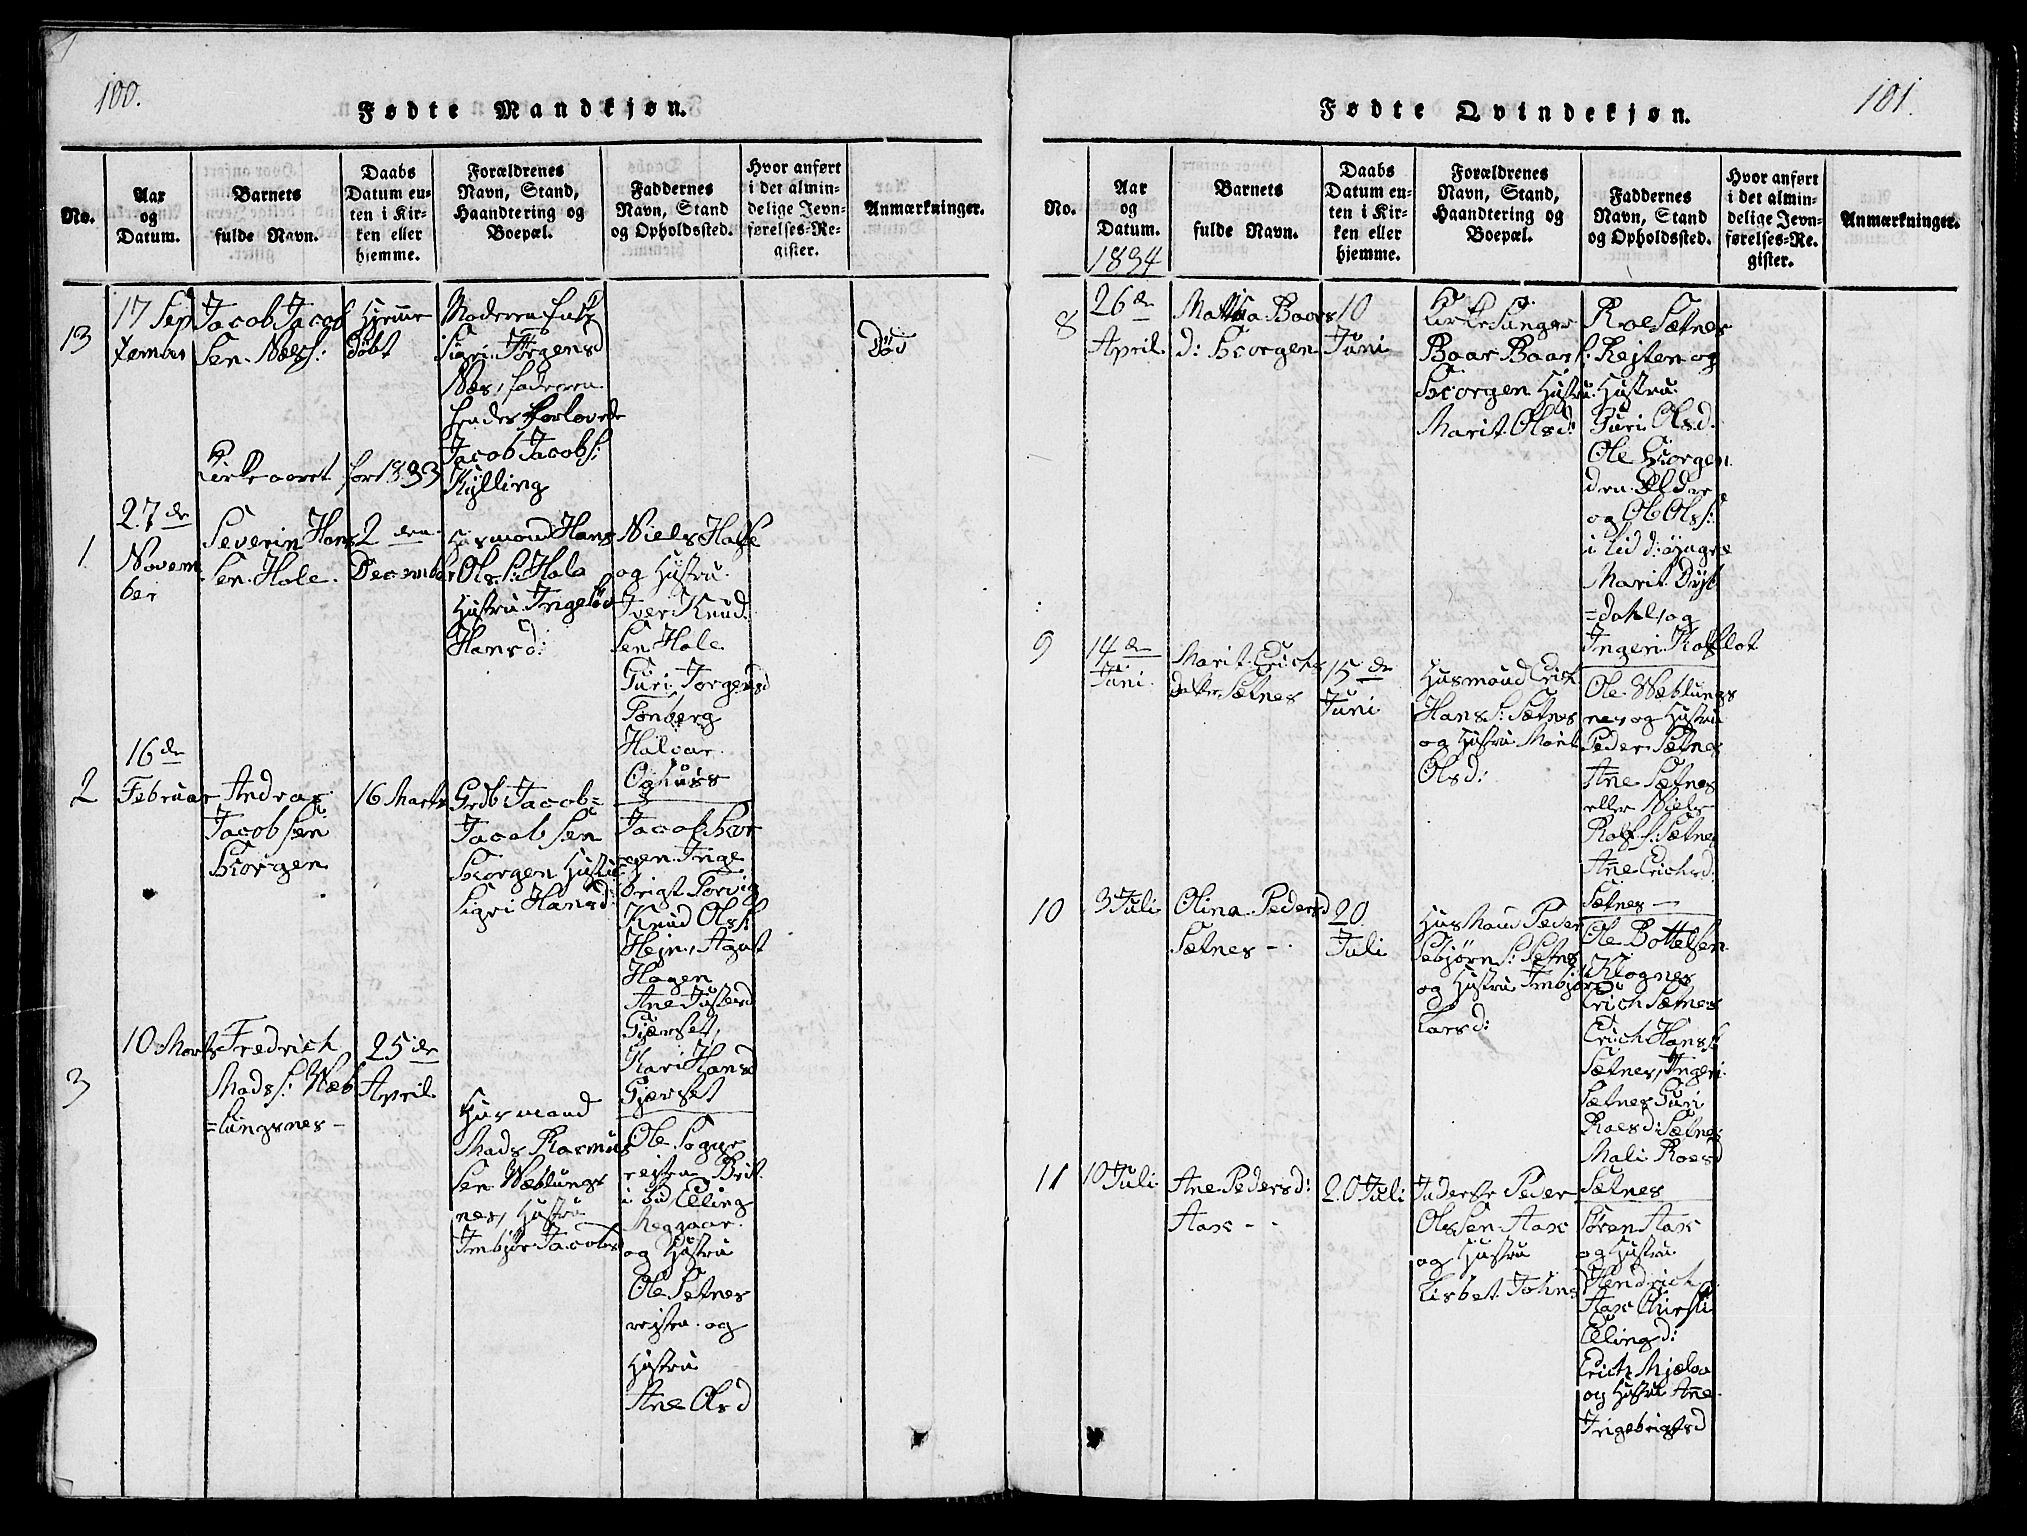 100.
Fødte Mandkjøn.
No.
Aar
og
Datum.
Barnets
fulde Navn.
Daabs
Datum en-
ten i Kir-
ken eller
hjemme.
Forældrenes
Navn, Stand,
Haandtering og
Boepæl.
Faddernes
Navn, Stand
og Opholdssted.
Hvor anført
i det almin-
delige Jevn-
førelses-Re-
gister.
Anmærkninger.
13
17 Sep
tember
Jacob Jacob
Sen. Næss:
Hjemme
døbt
Moderen
Sigri Jørgensd
Næs, faderen
hendes forlovede
Jacob Jacobs:
Kylling
Død
Kirkeaaret for 1833
1
27 de
Novem
ber
Severin Hans
Sen. Hole.
2 den
December
Husmand Hans
Ols S: Hole
Hustru Ingeløv
Hansd:
Niels Hole
og Hustru.
Iver Knud
Sen Hole
Guri Jorgensd
Tonberg
Halvar
2
16 de
Februar
Andreas
Jacobsen
Skorgen
16 Marts
Grdb: Jacob
Jacob Sen
Skorgen Hustru
Sigri Hansd:
Jacob Skor
gen. Inge
brigt Torvig
Knud Ols S:
Hejn, Agust
Hagen
Ane Justensd
Gjerset,
Kari Hansd
Gjerset
3
10 Marts
Fredrich
Mads S: Næb
=lungsnes -
25 de
April
Husmand
Mads Rasmus
Sen Wæblungs
nes, Hustru
Imbjør Jacobsd
Ole Sogge
rejsten Brit
Elling
og Hustru
Ole Setnes
rejsten og
Hustru
Ane Olsd
101.
Fødte Qvindekjøn.
No.
Aar
og
Datum.
1834
Barnets
fulde Navn.
Daabs
Datum en-
ten i Kir-
ken eller
hjemme.
Forældrenes
Navn, Stand,
Haandtering og
Boepæl.
Faddernes
Navn, Stand
og Opholdssted.
Hvor anført
i det almin-
delige Jevn-
førelses-Re-
gister.
Anmærkninger.
8
26 de
April
Mattia Baars
d: Skorgen
10
Juni
Kirkesanger
Baar Baar S:
Skorgen Hustru
Marit Olsd:
Roe Sætnes
Rejten og
Hustru
Guri Olsd.
Ole Skorgen
den Eldre
og Ole Ols S:
Marit Dyb
=dahl, og
Ingeri Kaflot
9
14 de
Juni.
Marit Erichs
Datter Sætnes
15 de
Juni
Husmand Erik
Hans S: Sætnes
og Hustru Marit
Olsd:
Ole Wæblungs
nes og Hustru
Peder Sætnes
Ane Sætnes
eller Niels
Rolf S: Sætnes
Ane Erichsd:
Sætnes -
10
3 Juli
Olina Pedersd
Sætnes -
20
Juli
Husmand Peder
Sebjørn S: Setnes
og Hustru Imbjør
Larsd:
Ole Bottelsen
Klognes
Erich Sætnes
Erich Hans S:
Sætnes, Ingeri
Sætnes Guri
Roesd: Sætnes
Mali Roesd
Sætnes
11
10 Juli
Ane Pedersd:
Aax - -
20 Juli
Inderste Peder
Olsen Aax
og Hustru
Lisbet Johns
Søren Aax
og Hustru
Hendrich
Aax Chirsti
Ellingd:
Erich Mjelva
og Hustru Ane
Ingebrigtsd